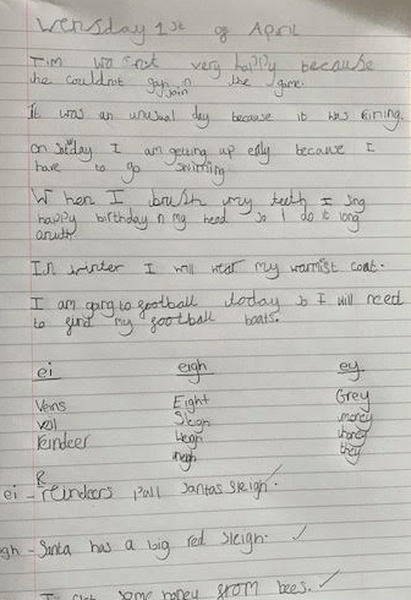 Wensday 1st of April
Tim wasnt very happy because
he couldnt join in the game.
It was an unusual day because it was raining.
on I am getting up erly because I
have to go swimming.
When I brush my teeth I sing
happy birthday n my head so I do it long
In winter I will wear my warmist coat.
I am going to football today so I will need
to find my football boats.
ei eigh ey
Veins Eight Grey
veil Sleigh money
reindeer honey
neigh they
R
ei - reindeers pull santas sleigh.
gh - Santa has a big red sleigh.
some honey from bees.